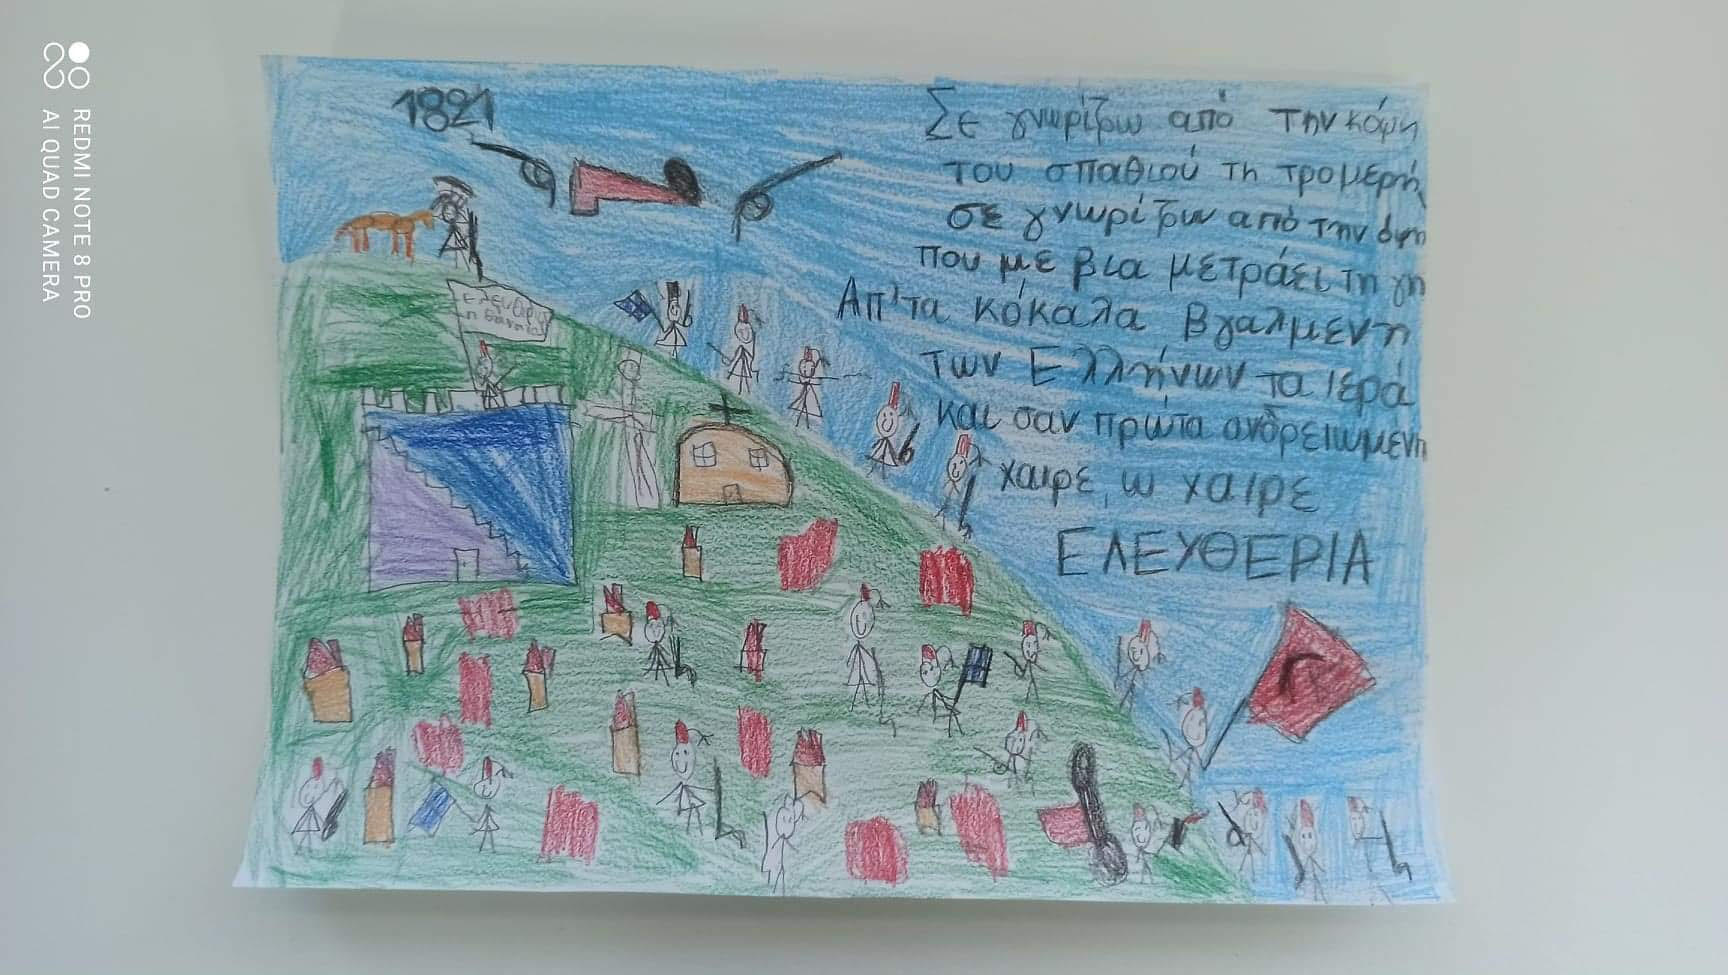 1821
Σε γνωρίζω από την κόψη
του σπαθιού τη τρομερή
σε γνωρίζω από την όψη
που με βια μετράει τη γη
Απ'τα κόκαλα βγαλμενη
των Ελλήνων τα ιερά
και σαν πρώτα ανδρειωμενη
χαιρε, ω χαιρε
ΕΛΕΥΘΕΡΙΑ
Ελευθερία
η θάνατος
REDMI NOTE 8 PRO
AI QUAD CAMERA